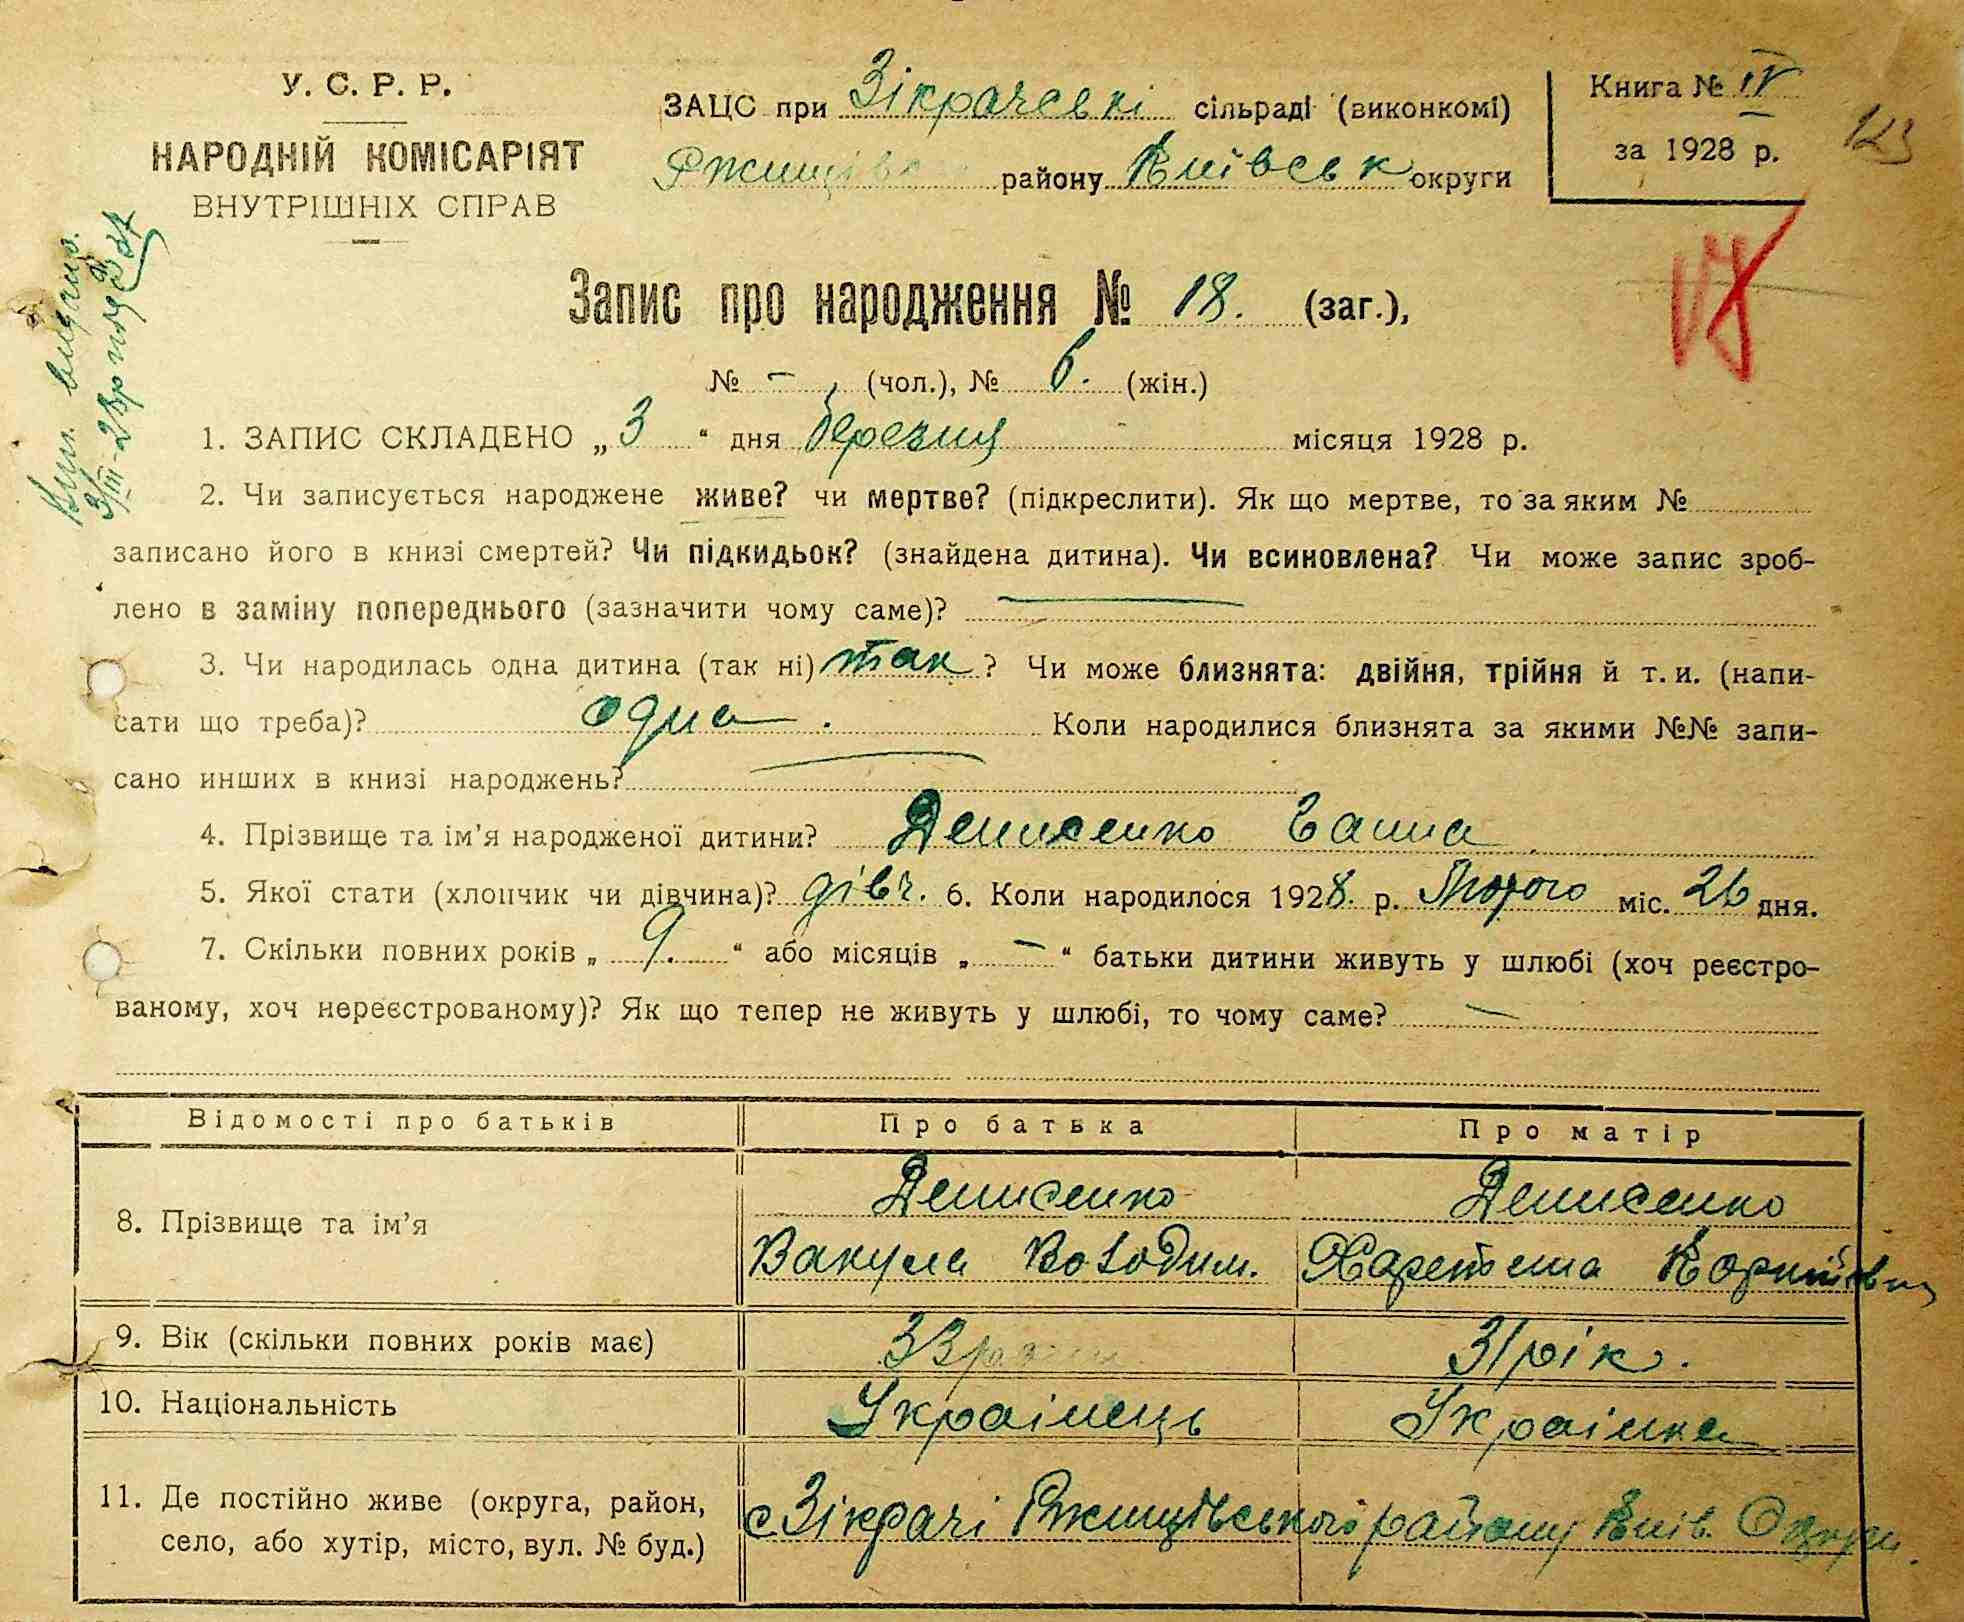 У. С. Р. Р.
НАРОДНІЙ КОМІСАРІЯТ
ВНУТРІШНІХ СПРАВ
ЗАЦС при Зікрачевкі сільраді (виконкомі)
Ржищівс району Київськ округи
Книга № IV
за 1928 р.
123
18
Запис про народження № 18. (заг.),
№ - , (чол.), № 6. (жін.)
1. ЗАПИС СКЛАДЕНО „ 3 “ дня березня місяця 1928 р.
2. Чи записується народжене живе? чи мертве? (підкреслити). Як що мертве, то за яким №
записано його в книзі смертей? Чи підкидьок? (знайдена дитина). Чи всиновлена? Чи може запис зроб-
лено в заміну попереднього (зазначити чому саме)?
3. Чи народилась одна дитина (так ні) так ? Чи може близнята: двійня, трійня й т. и. (напи-
сати що треба)? одна . Коли народилися близнята за якими №№ запи-
сано инших в книзі народжень?
4. Прізвище та ім’я народженої дитини? Денисенко Ганна
5. Якої стати (хлопчик чи дівчина)? дівч. 6. Коли народилося 1928. р. Лютого міс. 26 дня.
7. Скільки повних років „ 9. “ або місяців „ - “ батьки дитини живуть у шлюбі (хоч реєстро-
ваному, хоч нереєстрованому)? Як що тепер не живуть у шлюбі, то чому саме? -
Відомості про батьків Про батька Про матір
8. Прізвище та ім’я Денисенко Денисенко
Вакула Володим. Харетена Корніївна
9. Вік (скільки повних років має) 33 роки 31 рік.
10. Національність Українець Українка
11. Де постійно живе (округа, район,
село, або хутір, місто, вул. № буд.)
с Зікрачі Ржищівського району Київ. Округи.